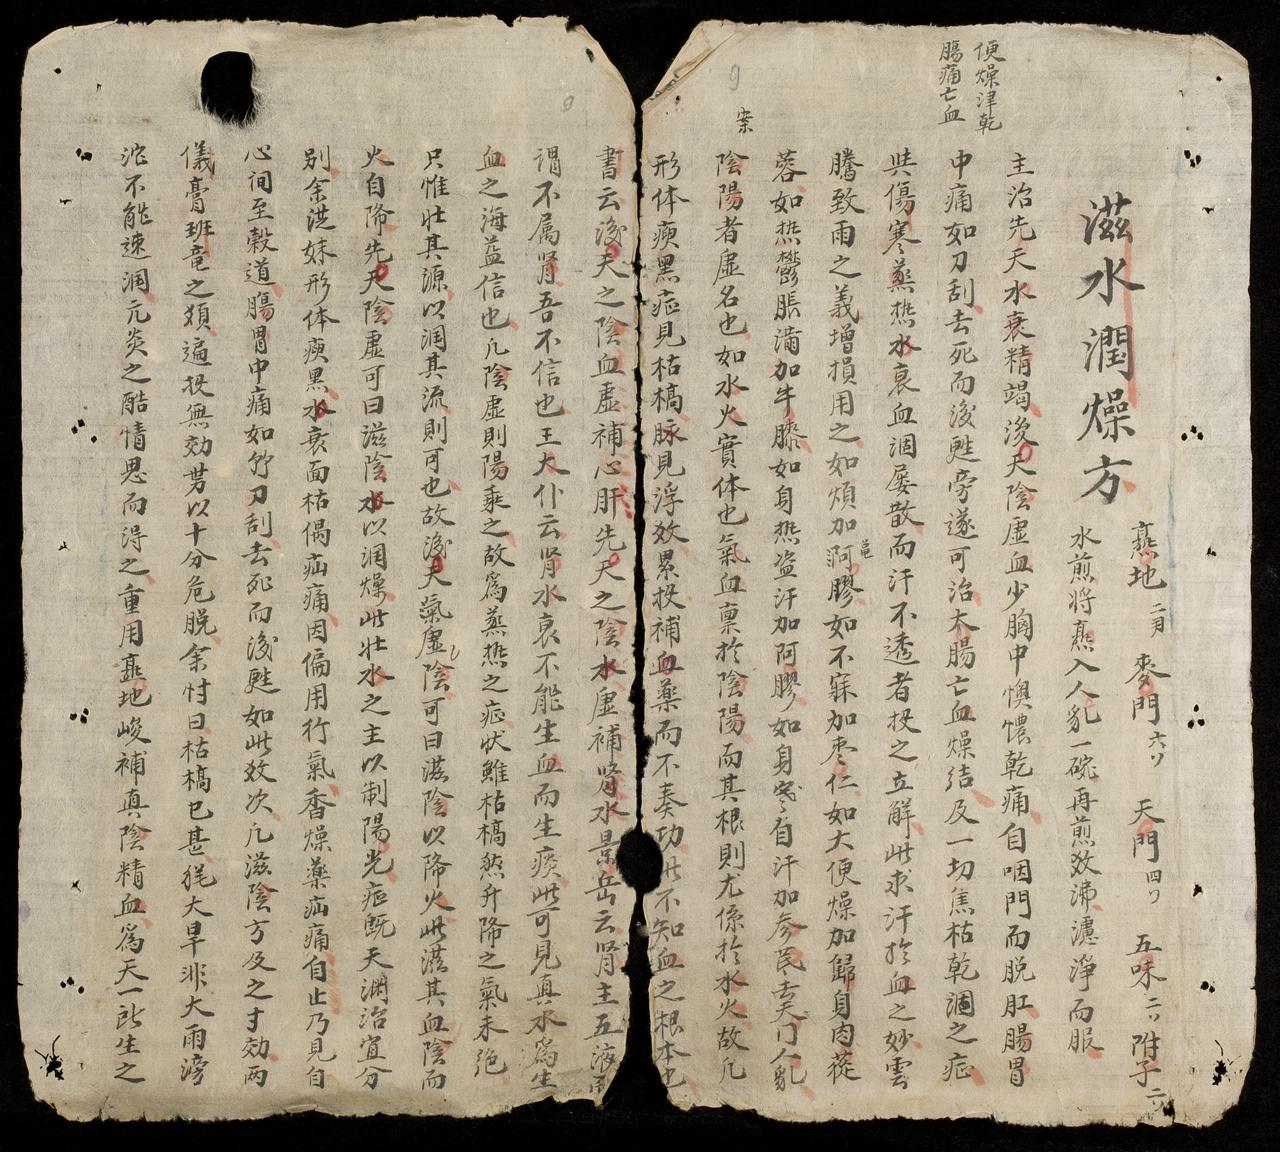 便燥津乾
腸痛亡血
滋水潤燥方
熟地二両 麥門六 天門四 五味二 附子二
水煎將熟入人乳一碗再煎效沸濾淨而服
主治先天水衰精竭後天陰虛血少胸中懊憹乾痛自咽門而脫肛腸胃
中痛如刀刮去死而後甦旁遂可治大腸亡血燥结及一切焦枯乾涸之症
与傷寒蒸热水衰血涸屡散而汗不透者投之立解此求汗於血之妙雲
騰致雨之義增損用之如煩加阿膠如不寐加枣仁如大便燥加歸身肉蓯
蓉如热鬱脹滿加牛膝如身热盗汗加阿膠如身寒自汗加参芪去天门人乳
案
陰陽者虛名也如水火實体也氣血禀於陰陽而其根則尤係於水火故凡
形体瘐黑症見枯槁脉見浮效累投補血藥而不奏功此不知血之根本也
書云後天之陰血虛補心肝先天之陰水虛補肾水景岳云肾主五液而
谓不属肾吾不信也王太仆云肾水衰不能生血而生痰此可見真水爲生
血之海益信也凡陰虛則陽乘之故爲蒸热之症状雖枯槁然升降之氣未绝
只惟壮其源以润其流則可也故後天氣虛陰可曰滋陰以降火此滋其血陰而
火自降先天陰虛可曰滋陰水以润燥此壮水之主以制陽光症既天渊治宜分
别余洪妹形体瘐黑水衰面枯偶疝痛因偏用行氣香燥藥疝痛自止乃見自
心间至榖道腸胃中痛如竹刀刮去死而後甦如此效次凡滋陰方及之寸効两
儀膏班竜之類遍投無効势以十分危脱余忖曰枯槁已甚犹大旱非大雨滂
沱不能速润亢炎之酷情思而得之重用熟地峻補真陰精血爲天一所生之